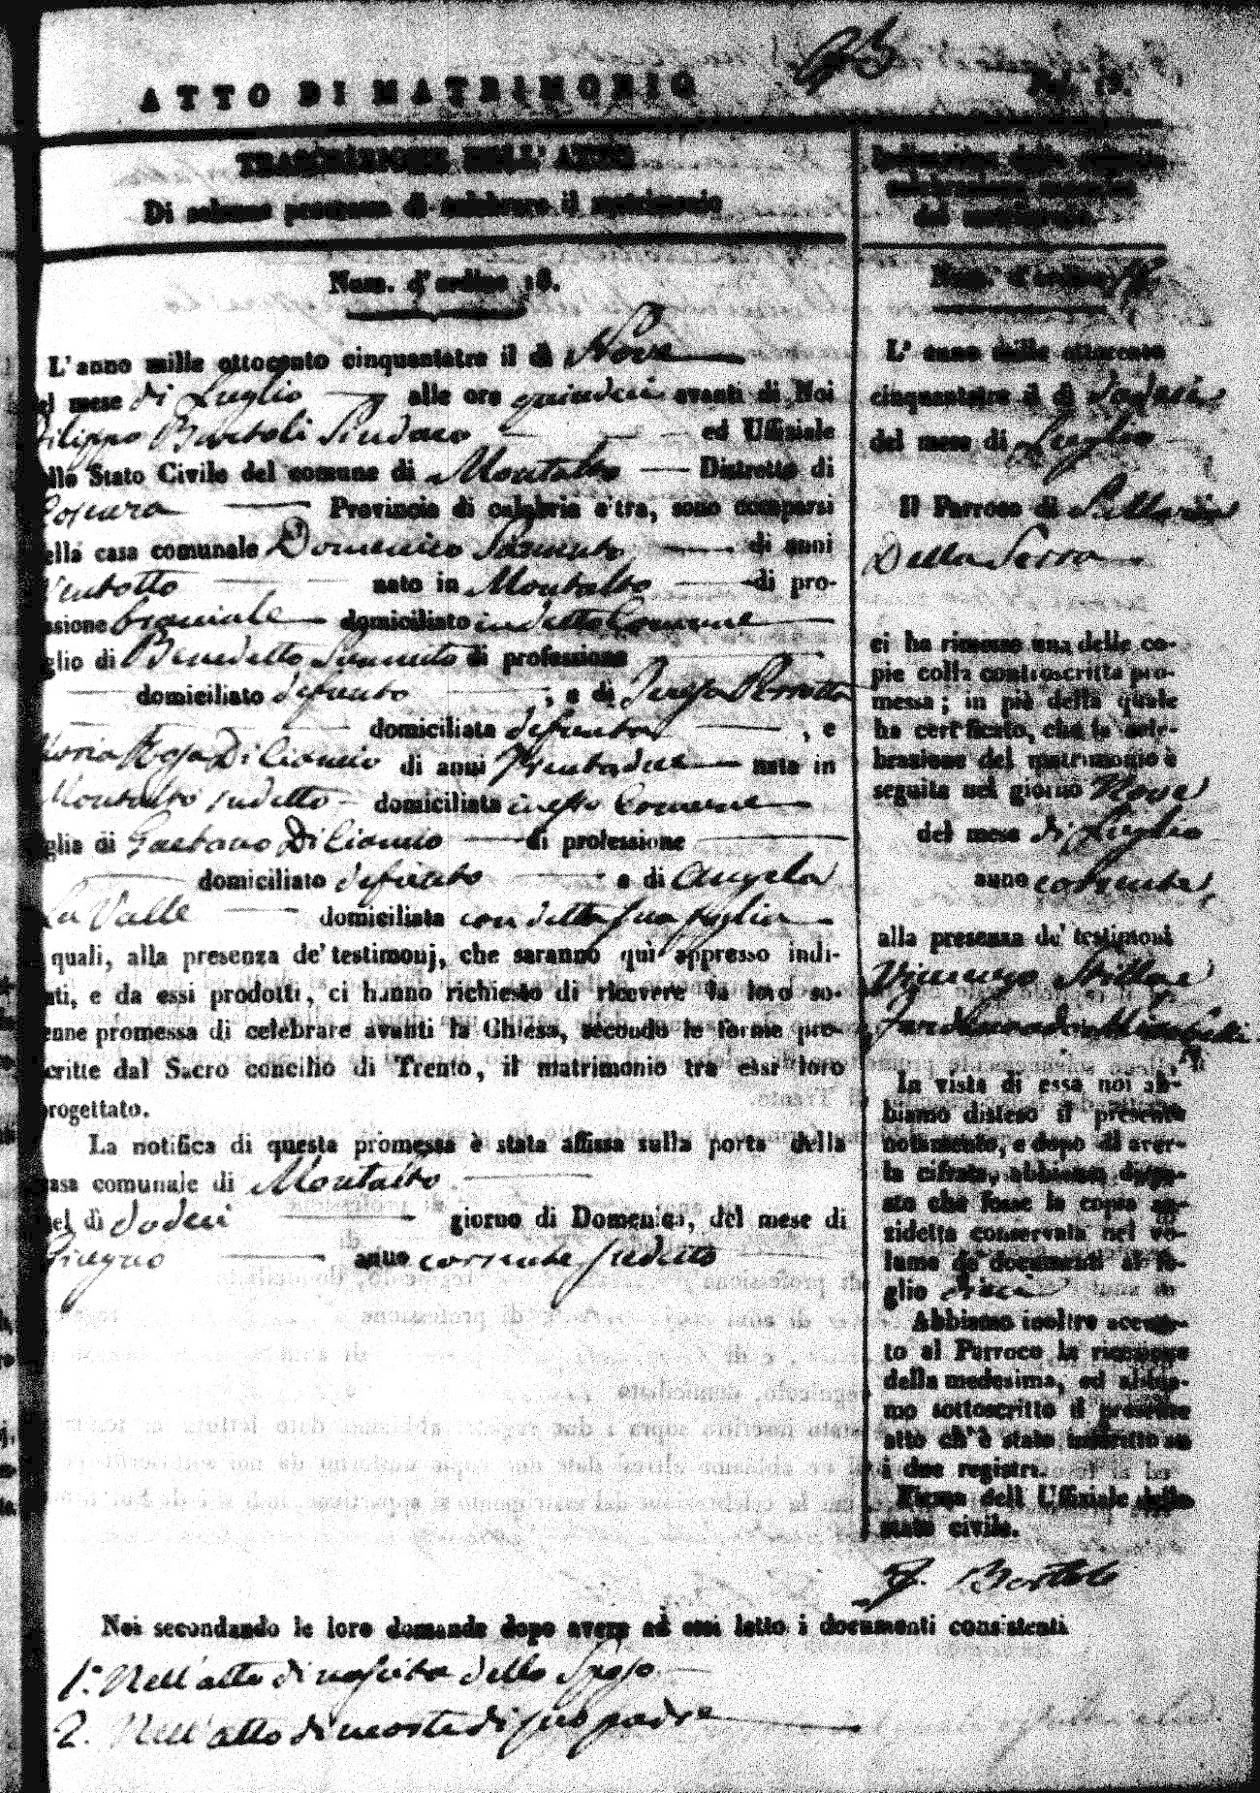 ATTO DI MATRIMONIO
TRASCRIZIONE DELL' ATTO
Di solenne promessa di celebrare il matrimonio
Num. d'ordine 18.
L'anno mille ottocento cinquantatre il dì Nove
el mese di Luglio alle ore quindeci avanti di Noi
ilippo Bartoli Sindaco ed Uffiziale
ello Stato Civile del comune di Montalto Distretto di
Cosenza Provincia di calabria citra, sono comparsi
ella casa comunale Domenico di anni
Ventotto nato in Montalto di pro-
essione braciale domiciliato in detto Comune
glio di Benedetto di professione
domiciliato defunto , e di Teresa Perrotta
domiciliata defunta , e
Maria Rosa Di Cianno di anni Trentadue nata in
Montalto sudetto domiciliata in esso Comune
glia di Gaetano Di Cianno di professione
domiciliato defunto e di Angela
La Valle domiciliata con detta sua figlia
quali, alla presenza de' testimonj, che saranno quì appresso indi-
ati, e da essi prodotti, ci hanno richiesto di ricevere la loro so-
enne promessa di celebrare avanti la Chiesa, secondo le forme pre-
critte dal Sacro concilio di Trento, il matrimonio tra essi loro
rogettato.
La notifica di questa promessa è stata affissa sulla porta della
casa comunale di Montalto
nel dì dodeci giorno di Domenica, del mese di
Giugno anno corrente sudetto
Num. d'ordine
L' anno mille ottocento
cinquantatre il dì dodeci
del mese di Luglio
Il Parroco di
Della Serra
ci ha rimesso una delle co-
pie colla controscritta pro-
messa; in piè della quale
ha certificato, che la cele-
brazione del matrimonio è
seguita nel giorno Nove
del mese di Luglio
anno corrente
alla presenza de' testimoni
Vincenzo
In vista di essa noi ab-
biamo disteso il presente
notamento, e dopo di aver-
la cifrata, abbiamo dispo-
sto che fosse la copia an-
zidetta conservata nel vo-
lume de' documenti al fo-
glio
Abbiamo inoltre accusa-
to al Parroco la ricezione
della medesima, ed abbia-
mo sottoscritto il presente
atto ch'è stato inscritto su
i due registri.
Firma dell Uffiziale dello
stato civile.
F. Bartoli
Noi secondando le loro domande dopo avere ad essi letto i documenti consistenti
1.° Nell'atto di nascita dello Sposo
2. Nell'atto di morte di suo padre